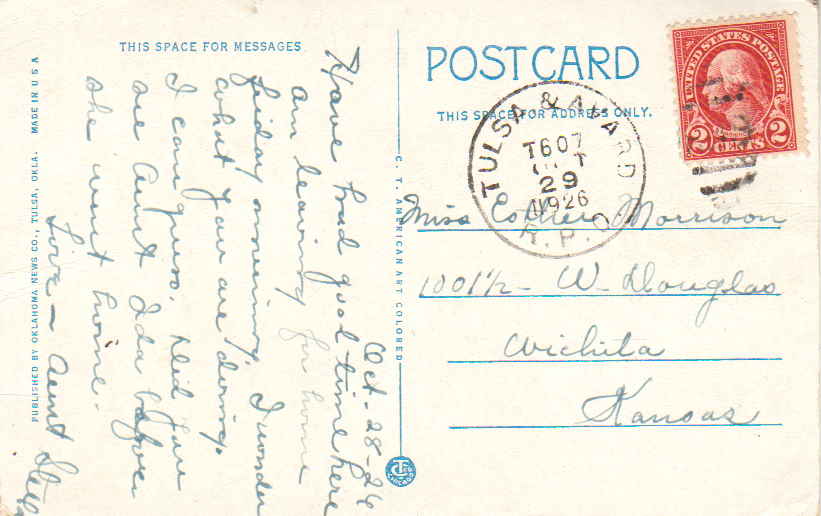 THIS SPACE FOR MESSAGES
POSTCARD
THIS SPACE FOR ADDRESS ONLY.
UNITED STATES POSTAGE
2 CENTS 2
TULSA & AVARD
T607
OCT
29
1926
R.P.O.
Oct-28-26
Have had good time here
am leaving for home
Friday morning, I wonder
what you are doing
I can guess, Did you
see Aunt Ida before
she went home.
Love - Aunt
Miss Morrison
1001 1/2 - W- Douglas
Wichita
Kansas
C. T. AMERICAN ART COLORED
PUBLISHED BY OKLAHOMA NEWS CO., TULSA, OKLA. MADE IN U S A
CHICAGO